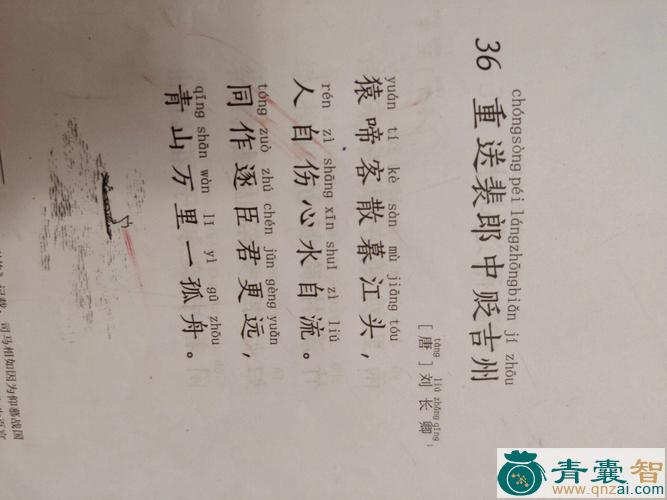 36 重送裴郎中贬吉州
chóngsòng péi lángzhōngbiǎn jí zhōu
[唐]刘长卿
táng liú zhǎng qīng
yuán tí kè sàn mù jiāng tóu
猿啼客散暮江头，
rén zì shāng xīn shuǐ zì liú
人自伤心水自流。
tóng zuò zhú chén jūn gèng yuǎn
同作逐臣君更远，
qīng shān wàn lǐ yì gū zhōu
青山万里一孤舟。
司马相如因为仰慕战国
青囊智
www.qnzai.com